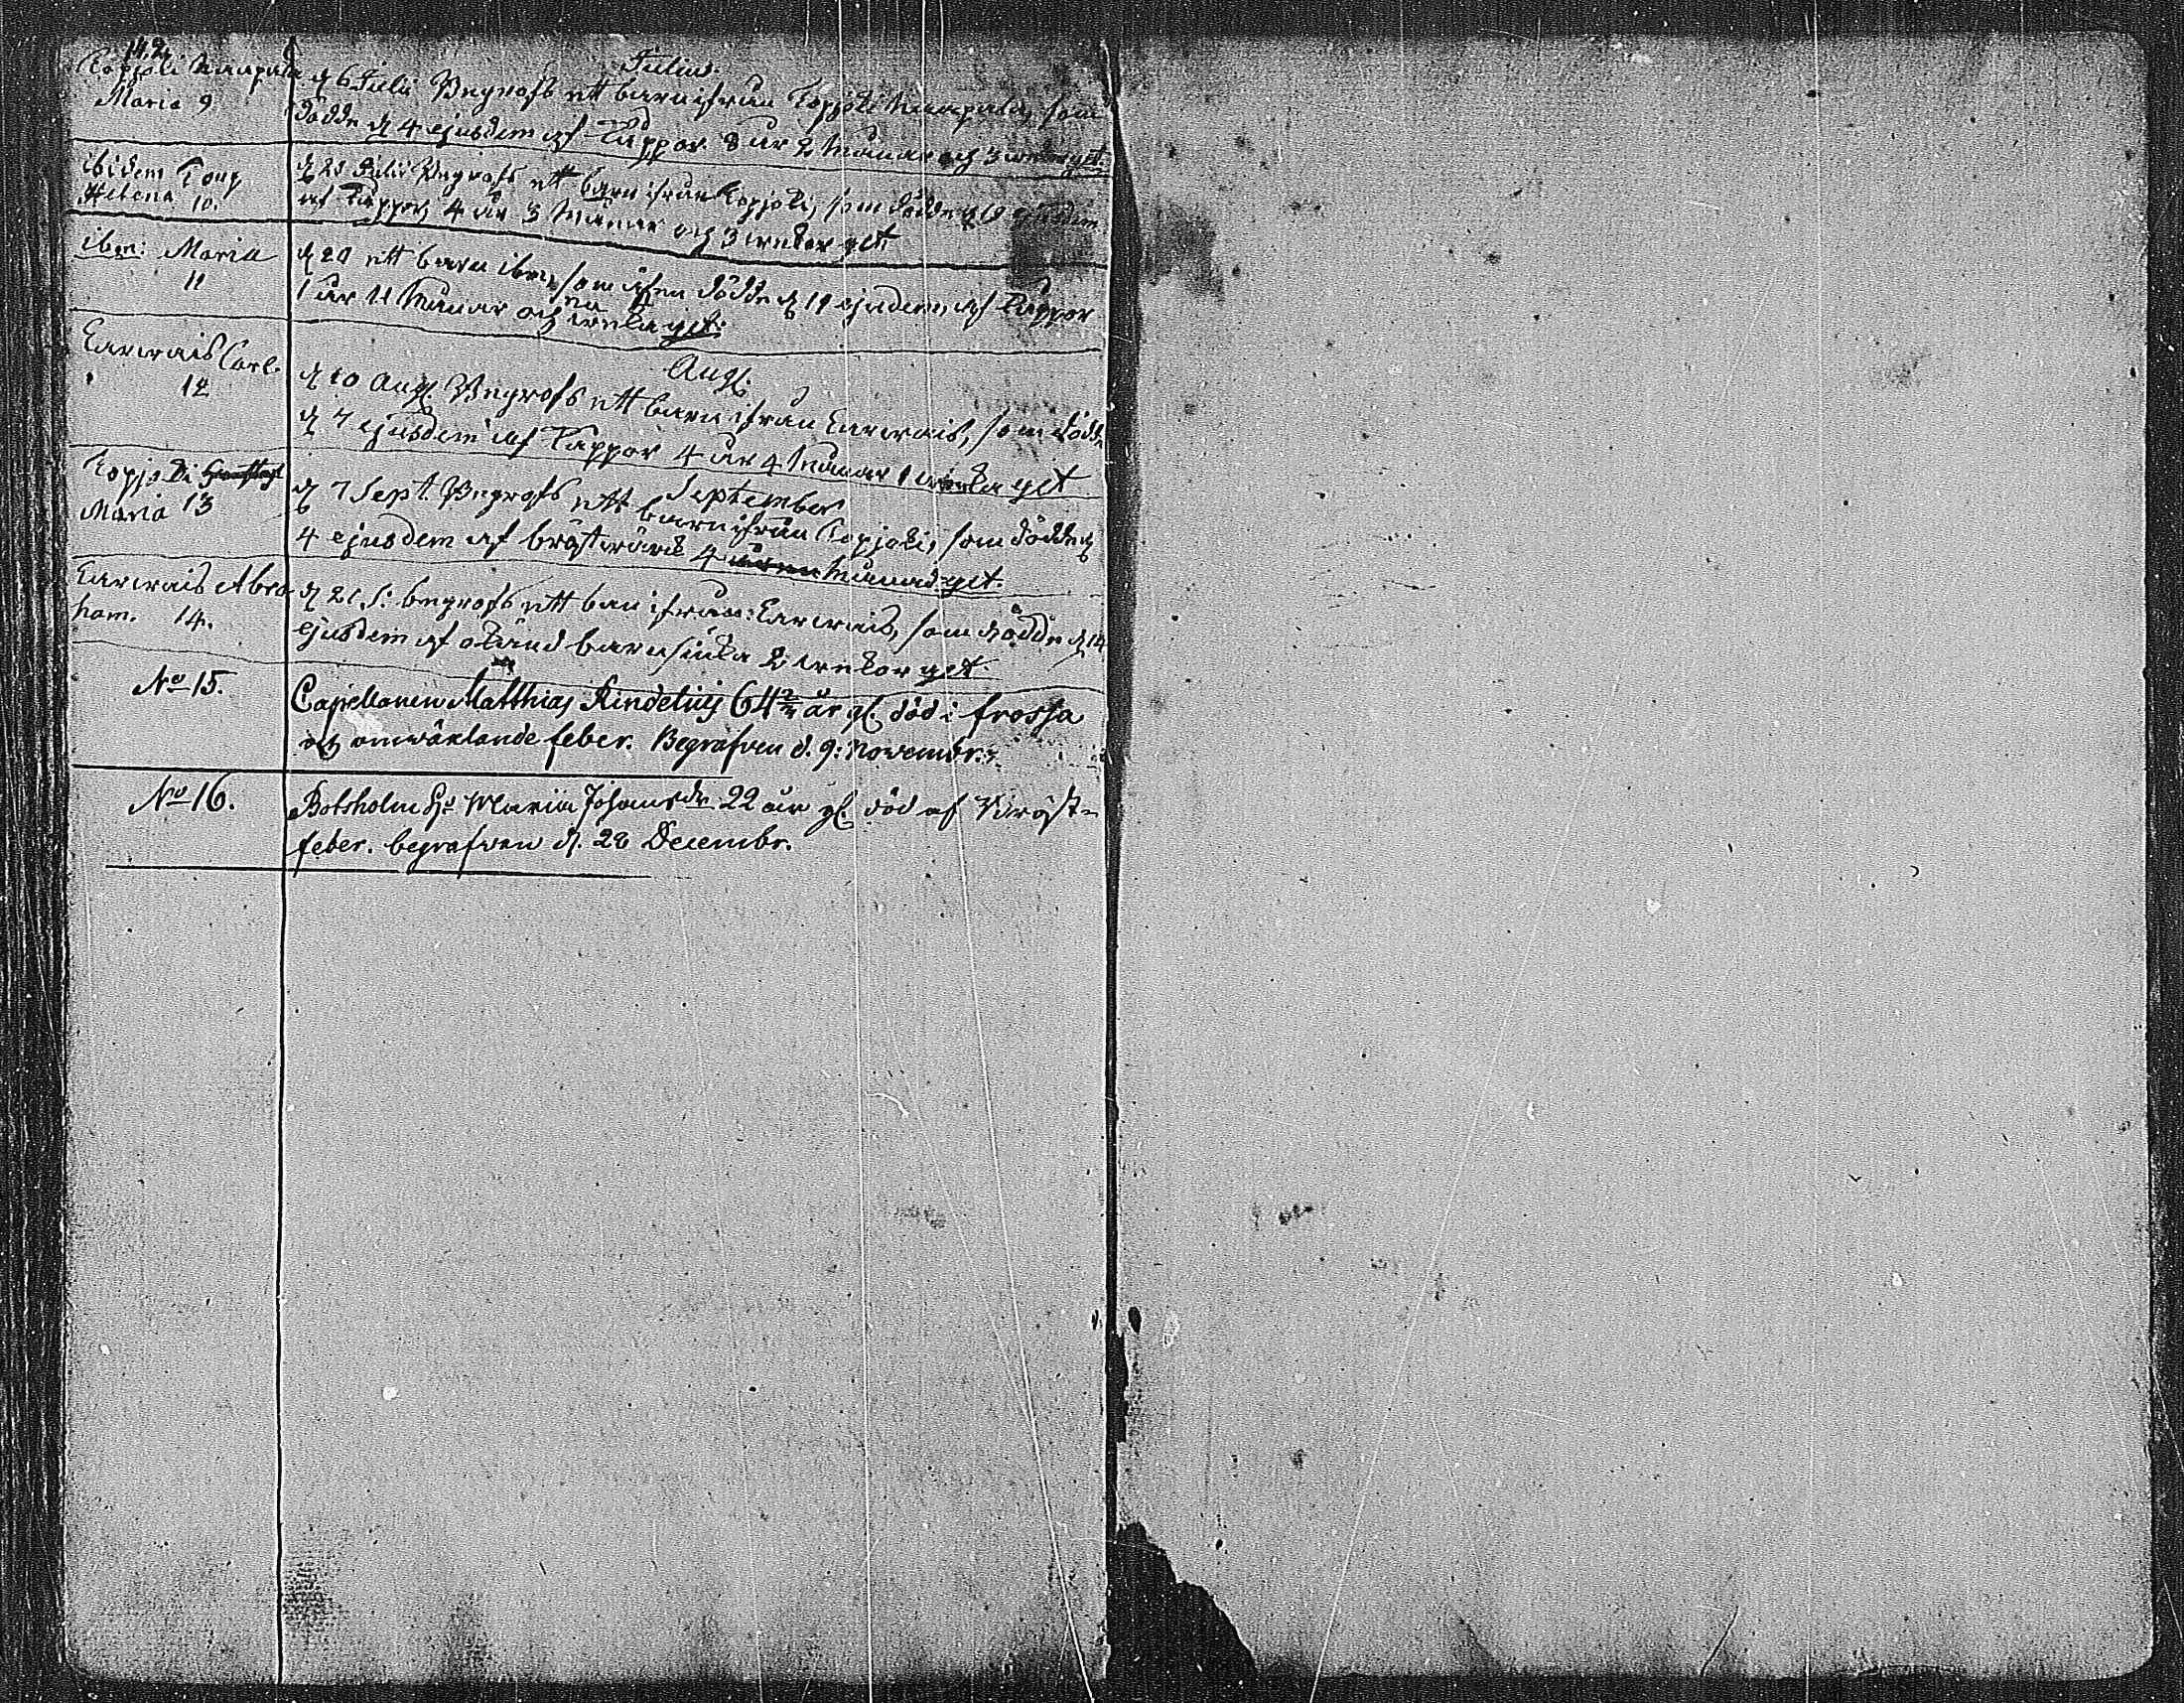 142
Julius.
Kopjoki Knaapila
Maria 9
d 6 Julii Begrofs ett barn ifrån Kopjoki Knaapila, som
dödde d 4 ejusdem af Kåppor 8 år 2 Månar och 3 wekor gt.
ibidem Tong
Helena 10.
d 25 Julii Begrofs ett barn ifrån Kopjoki, som dödde d 19 ejusdem
af Kåppor, 4 år 3 Månar och 3 wekor glt
ibm: Maria
11
d 20 ett barn ibm, som äfen dödde d 19 ejusdem, af Kåppor
1 år 11 Månar och en weka glt.
Augl.
Karwais Carl.
12
d 10 Augl. Begrofs ett barn ifrån Karwais, som dödde
d 7 ejusdem af Kåppor 4 år 4 Månar 1 weka glt
September
Kopjoki
Maria 13
d 7 Sept. Begrofs ett barn ifrån Kopjoki, som dödde d
4 ejusdem af bröstwärk 4 Månad glt.
Karwais Abra
ham. 14.
d 21 S: begrofs ett barn ifrån: Karwais, som dödde d 14
ejusdem af okänd barnsiuka 2 wekor glt.
No 15.
Capellanen Matthias Kindelius 64 år gl. död i frossa
och omwäxlande feber. Begrafven d. 9: Novembr.
No 16.
Botsholm Maria Johansdr 22 åur gl. död af Bröst-
feber. begrafven d. 28 Decembr.